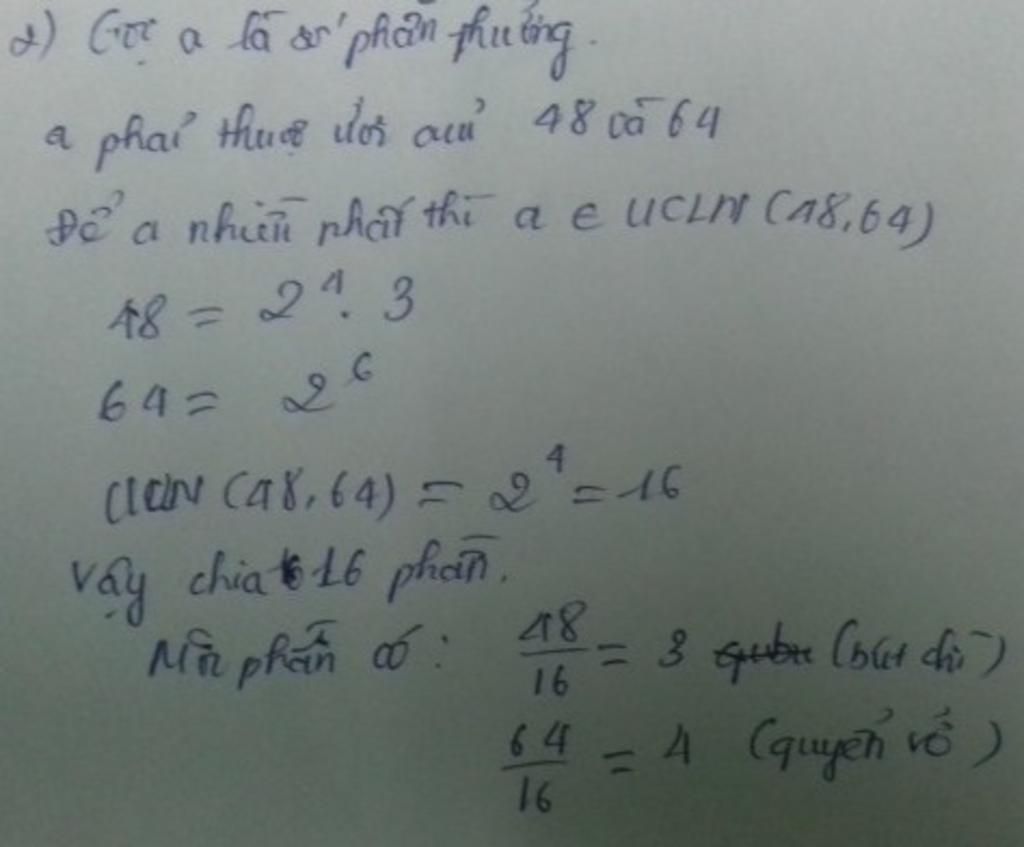 2) Gọi a là số phần thưởng.
a phải thuộc ước của 48 và 64
Để a nhiều nhất thì a ∈ UCLN (48,64)
48 = 2^4 . 3
64 = 2^6
UCLN (48,64) = 2^4 = 16
Vậy chia 16 phần.
Mỗi phần có : 48/16 = 3 (bút chì)
64/16 = 4 (quyển vở)